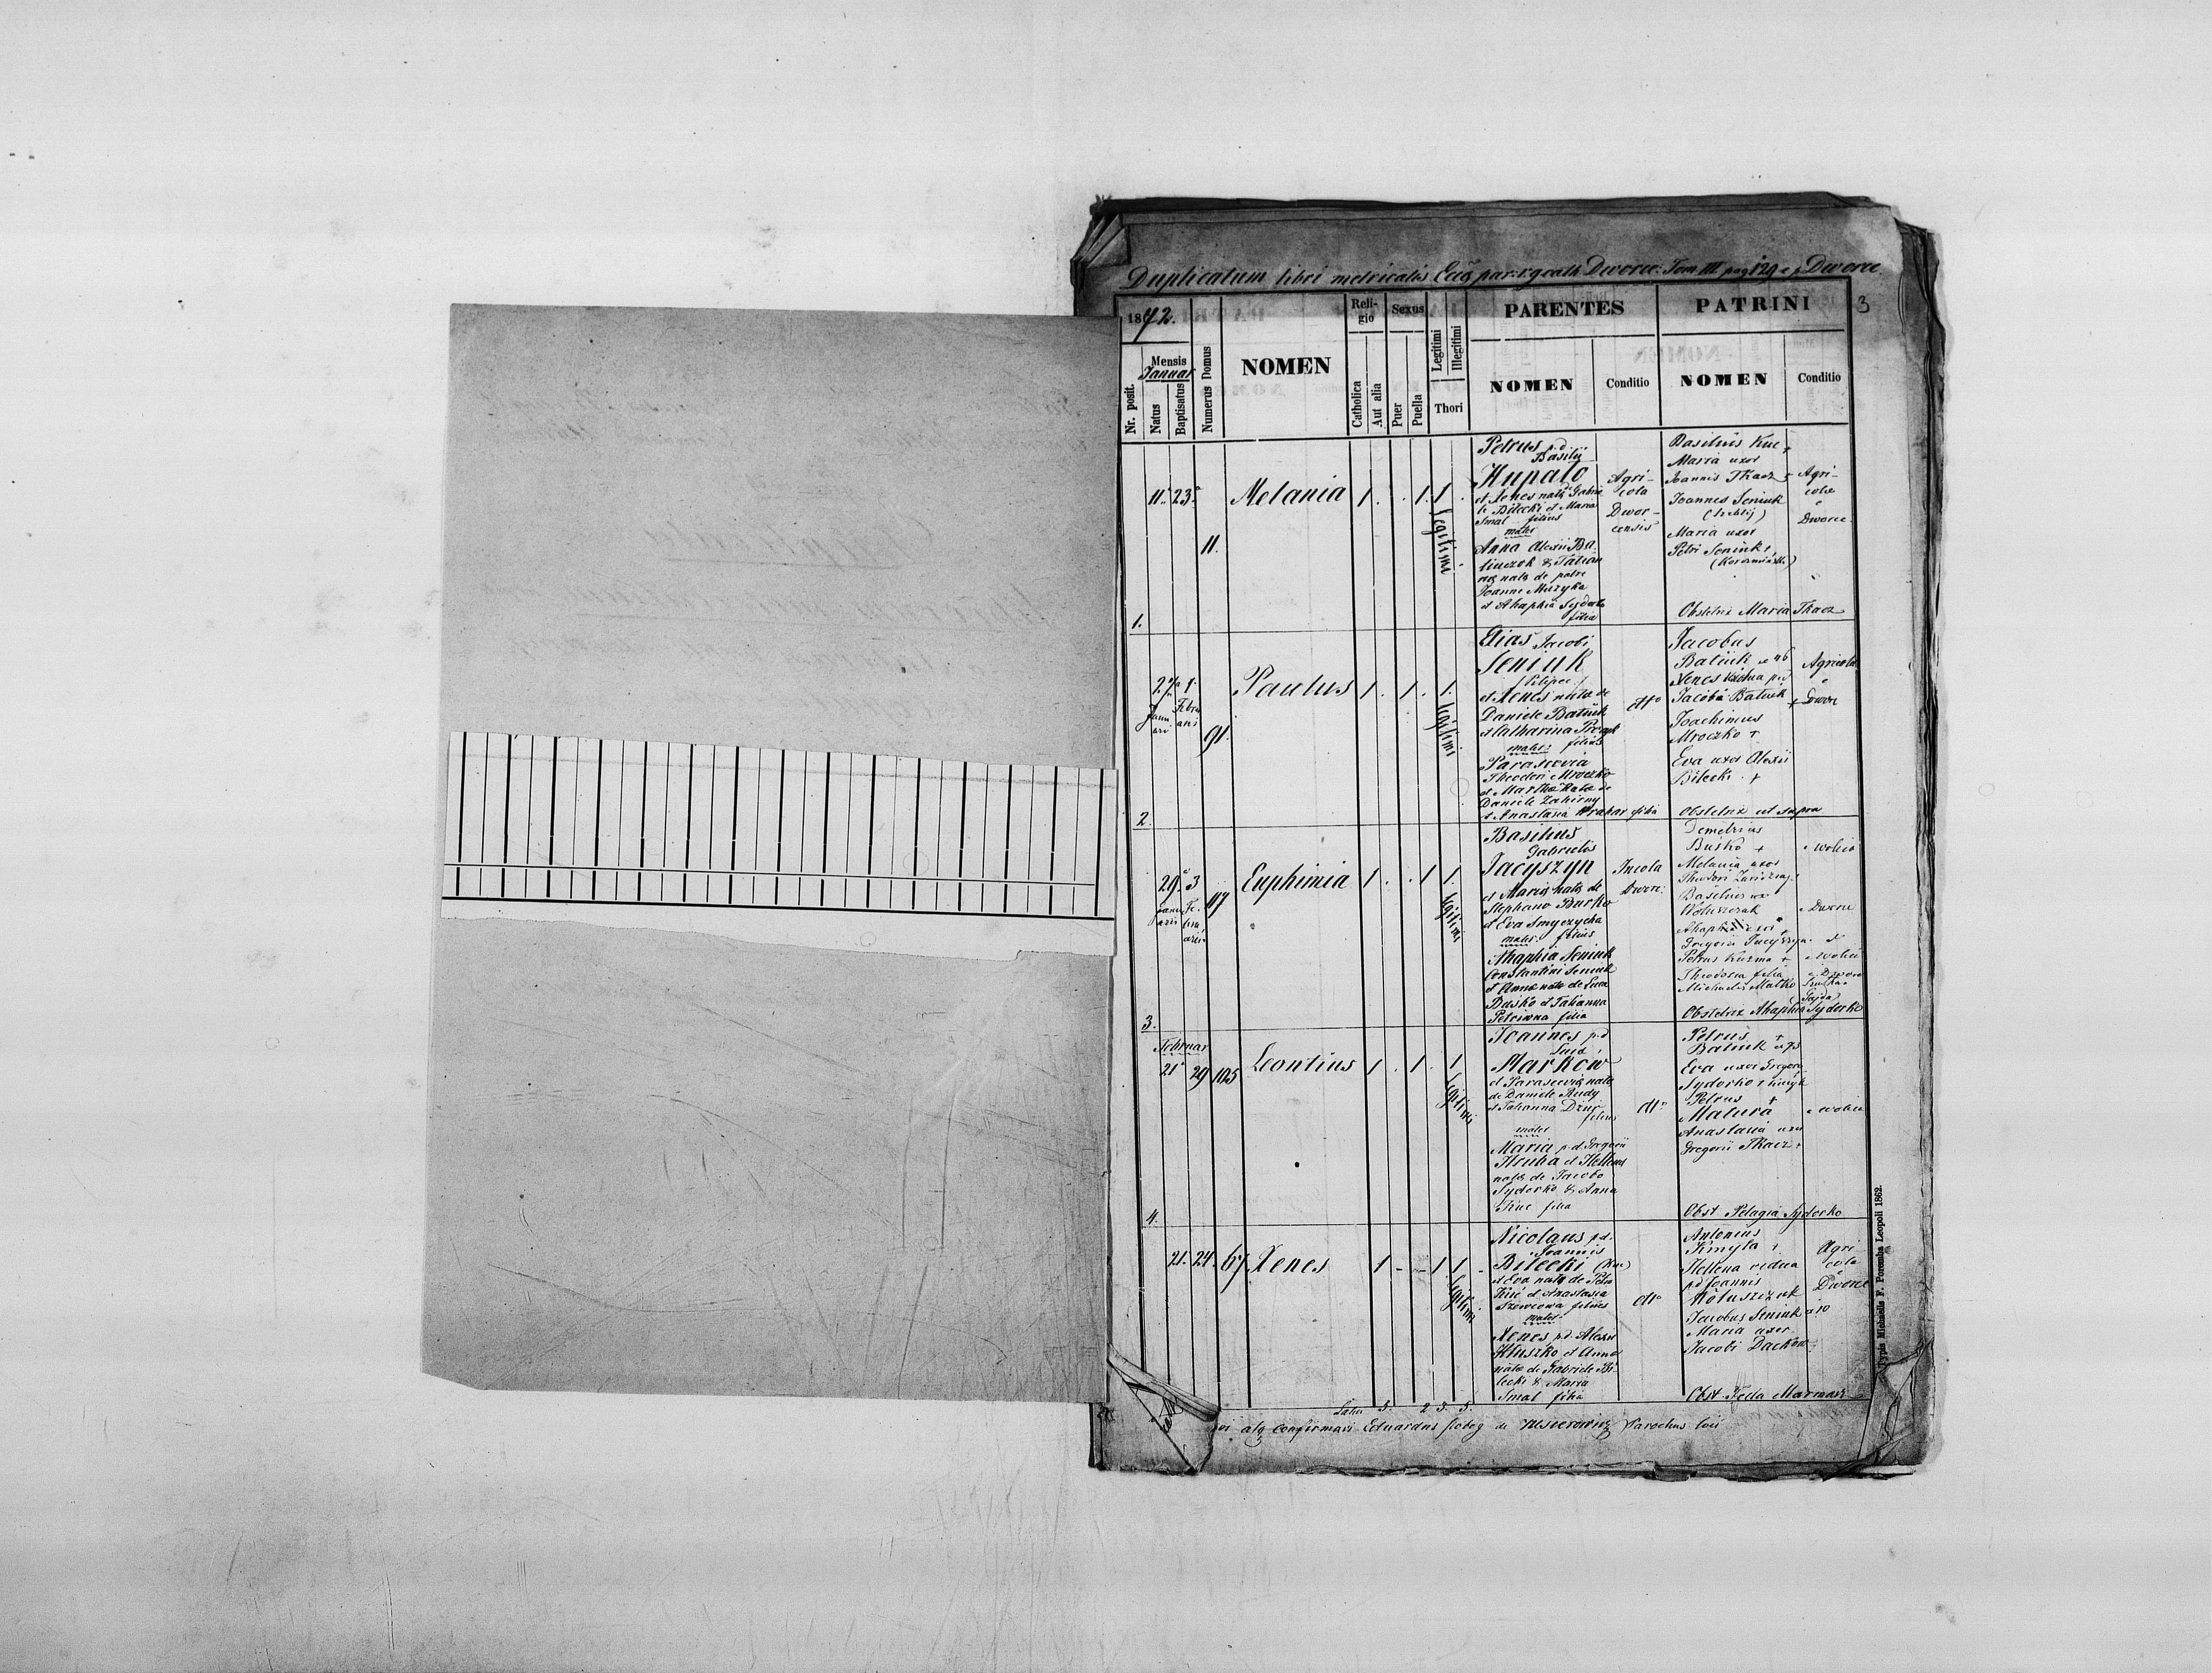 Duplicatum libri metricalis Eccl. par. r. g. cath. Dworce Tom III pag 129 Dworce.
3
1872.
Mensis
Januar
Nr. posit.
Natus
Baptisatus
Numerus Domus
NOMEN
Religio
Catholica
Aut alia
Sexus
Puer
Puella
Legitimi
Illegitimi
Thori
PARENTES
NOMEN
Conditio
PATRINI
NOMEN
Conditio
1.
11. 23.
11.
Melania
1. . 1. 1 .
Legitimi
Petrus p.d.
Basilii
Hupalo
et Xenes nata Gabrie
le Bilecki et Maria
Smal filius
mater
Anna Alexii Ba
liuczok & Tatian
nata de patre
Joanne Muzyka
et Ahaphia Sydorko
filia
Agri-
cola
Dwor-
censis
Basilius Kuc +
Maria uxor
Joannis Tkacz +
Joannes Seniuk
Maria uxor
Petri Seniuk +
Agri-
colae
e
Dworce
Obstetrix Maria Tkacz
2.
27 1.
Janu
ari
Febru
arii
91.
Paulus
1. 1. 1.
Legitimi
Elias Jacobi
Seniuk
et Xenes nata de
Daniele Batiuk
et Catharina
mater filius
Parascevia
Theodori Mroczko
et Martha nata de
Daniele Zahirny
et Anastasia filia
dtto
Jacobus
Batiuk
Xenes vidua p.d.
Jacobi Batiuk +
Joachimus
Mroczko +
Eva uxor Alexii
Bilecki +
Agricolae
e
Dworce
Obstetrix ut supra
3.
29. 3
Januarii
Februarii
117
Euphimia
1. . 1 1.
Legitimi
Basilius
Gabrielis
Jacyszyn
et Maria nata de
Stephano Burko
et Eva Smyczycha
mater filius
Ahaphia Seniuk
Constantini Seniuk
et Anna nata de Luca
Busko et Tatianna
Petriwna filia
Incola
Dworc:
Demetrius
Busko +
Melania uxor
Theodori
Basilius
Woluszczak
Ahaphia uxor
Gregorii Jacyszyn
Petrus Kuzma +
Theodosia filia
Michaelis Matko
e Wolica
e Dworce
e Wolica
e Dworce
Obstetrix Ahaphia Sydorko
4.
Februar
21 29 105
Leontius
1 . 1. 1
Legitimi
Joannes p.d
Markow
et Parascevia nata
de Daniele Rudy
et Tatianna Dzuś
filius
mater
Maria p.d. Gregorii
Hruba et Hellena
nata de Jacobo
Sydorko & Anna
Kuc filia
dtto
Petrus +
Batiuk
Eva uxor Gregorii
Sydorko +
Petrus +
Matura
Anastasia uxor
Gregorii Tkacz +
e Wolica
Obst. Pelagia Sydorko
21. 24. 67
Xenes
1 - - 1 1 -
Legitimi
Nicolaus p.d.
Joannis
Bilecki (Kuc)
et Eva nata de Petro
Kuc et Anastasia
Szewcowa filius
mater
Xenes p.d. Alexii
Hluszko et Anna
nata de Gabriele Bi
lecki & Maria
Smal filia
dtto
Antonius
Kmyta +
Hellena vidua
p.d Joannis
Woluszczak
Jacobus Seniuk
Maria uxor
Jacobi Dackow
Agri
cola
e
Dworce
Obst. Tecla
Latus 5. 2 3. 5.
atq confirmavi Eduardus de Parochus loci
Typis Michaelis F. Poremba Leopoli 1862.